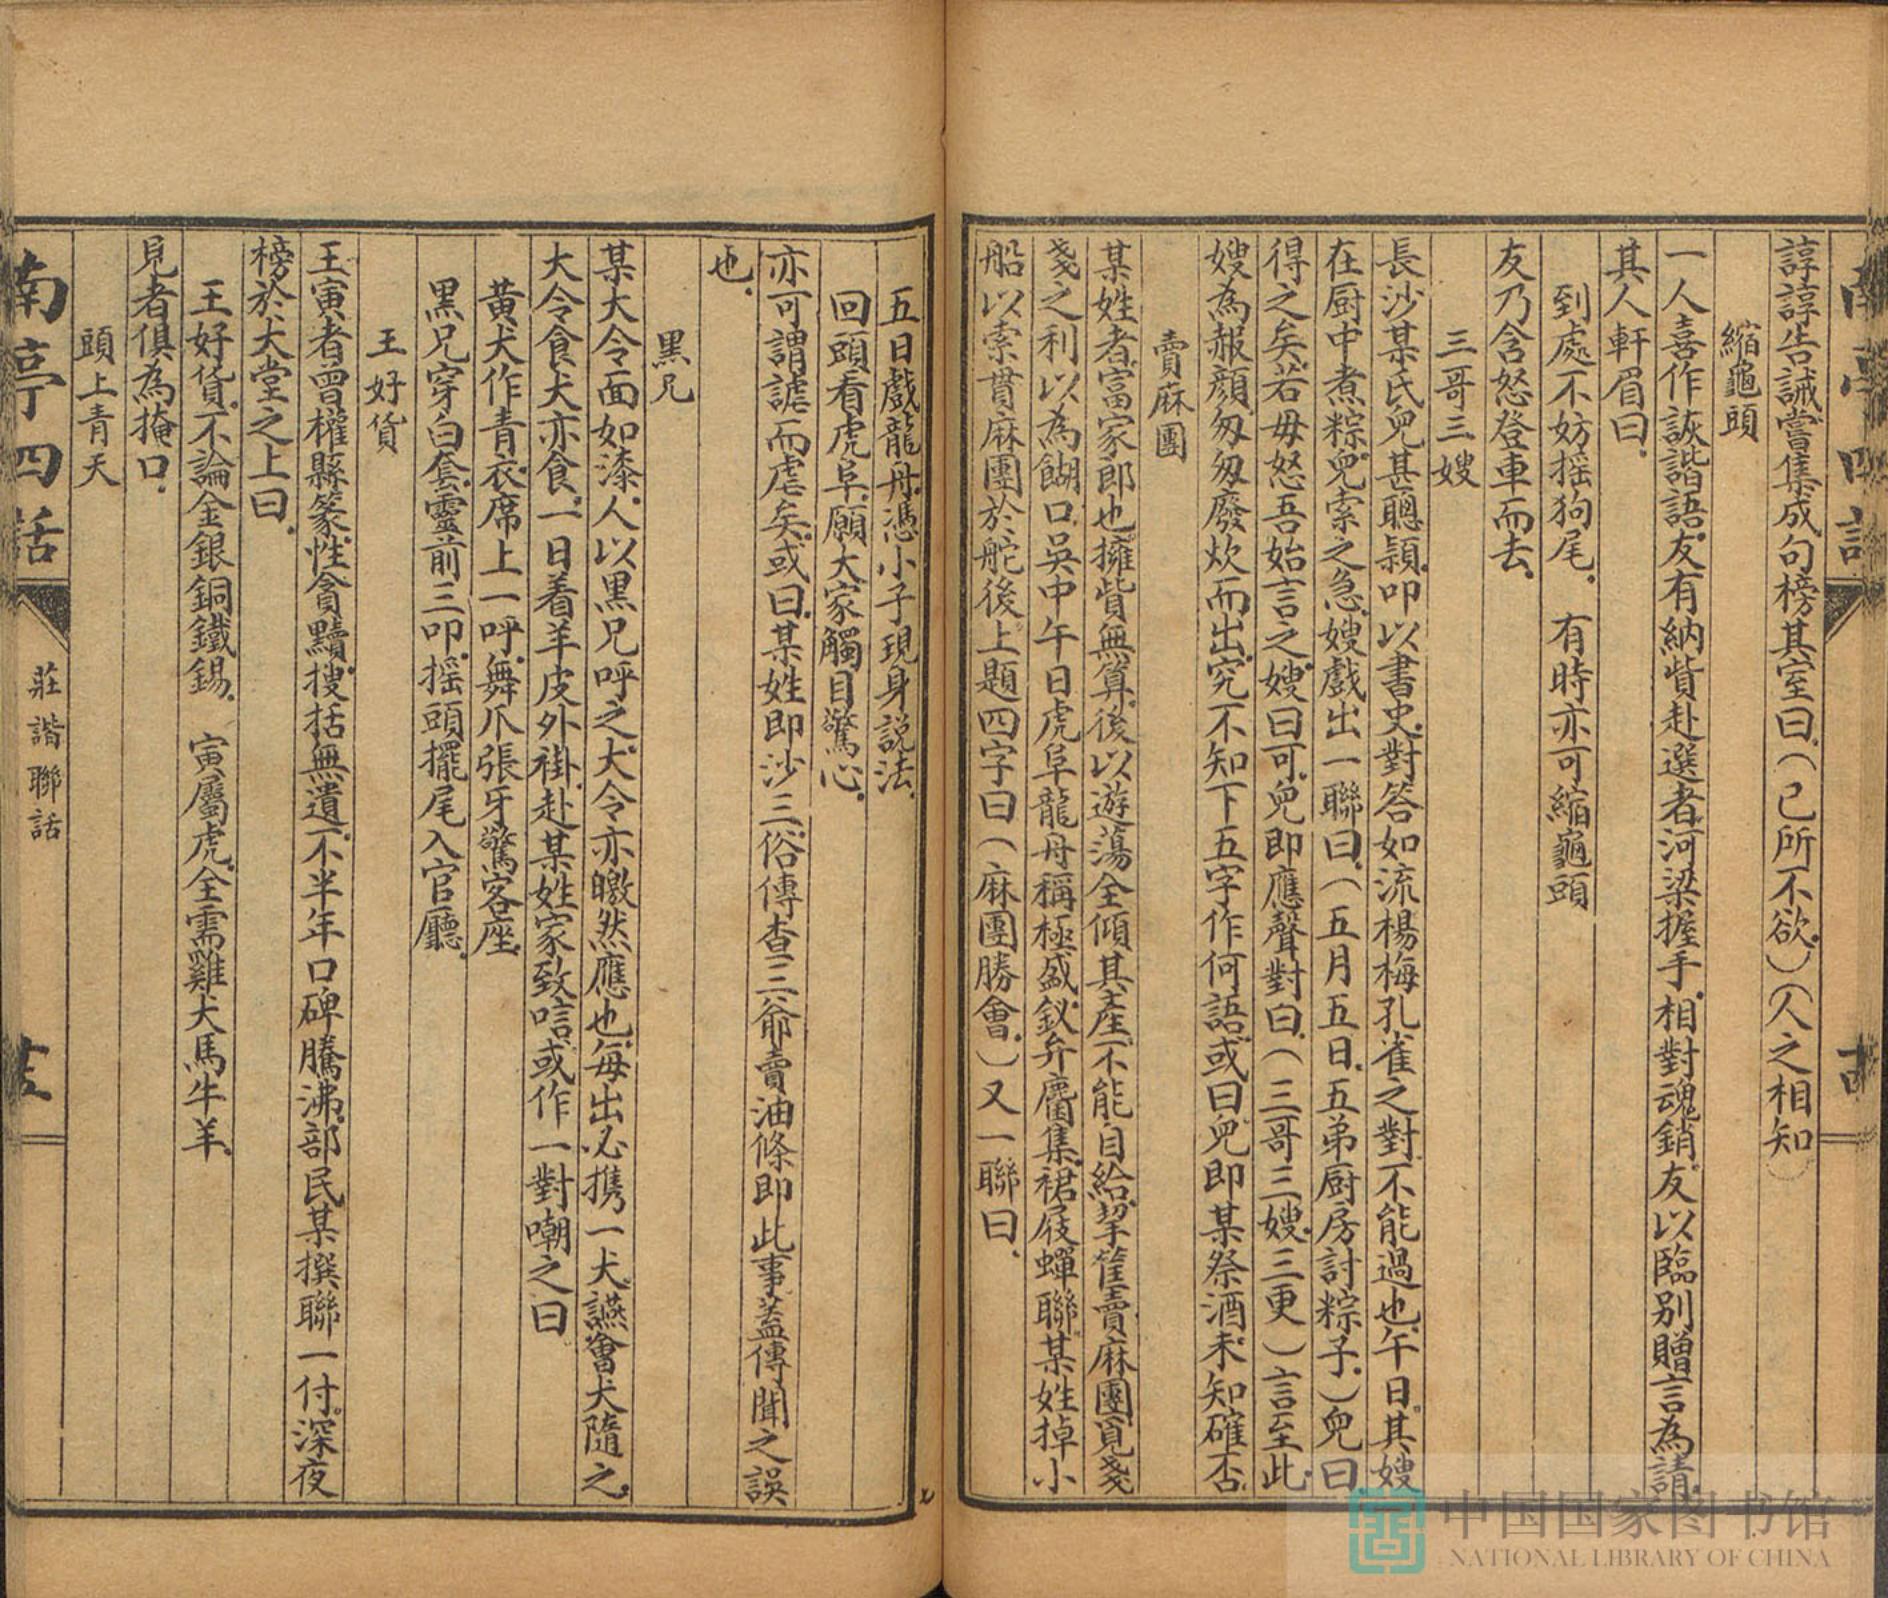 諄諄告誡嘗集成句榜其室曰.(己所不欲.)(人之相知)
縮龜頭
一人喜作詼諧語.友有納貲赴選者.河梁握手.相對魂銷.友以臨別贈言為請.
其人軒眉曰.
到處不妨搖狗尾. 有時亦可縮龜頭
友乃含怒登車而去.
三哥三嫂
長沙某氏兒.甚聰穎.叩以書史.對答如流.楊梅孔雀之對.不能過也.午日.其嫂
在厨中煮粽.兒索之急.嫂戲出一聯曰.(五月五日.五弟厨房討粽子.)兒曰
得之矣.若毋怒.吾始言之.嫂曰可.兒即應聲對曰.(三哥三嫂.三更)言至此.
嫂為赧顏.匆匆廢炊而出.究不知下五字作何語.或曰.兒即某祭酒.未知確否.
賣麻團
某姓者.富家郎也.擁貲無算.後以遊蕩.全傾其產.不能自給.挈筐賣麻團.覓戔
戔之利.以為餬口.吳中午日.虎阜龍舟.稱極盛.釵弁麕集.裙屐蟬聯.某姓掉小
船.以索貫麻團於舵後.上題四字曰(麻團勝會.)又一聯曰.
五日戲龍舟.憑小子現身說法.
回頭看虎阜.願大家觸目驚心.
亦可謂謔而虐矣.或曰.某姓即沙三.俗傳查三爺賣油條.即此事.蓋傳聞之誤
也.
黑兄
某大令面如漆.人以黑兄呼之.大令亦皦然應也.每出必携一犬.讌會犬隨之.
大令食.犬亦食.一日着羊皮外褂.赴某姓家致唁.或作一對嘲之曰
黃犬作青衣.席上一呼.舞爪張牙驚客座.
黑兄穿白套.靈前三叩.搖頭擺尾入官廳.
王好貨
王寅者.曾權縣篆.性貪黷.搜括無遺.不半年.口碑騰沸.部民某撰聯一付.深夜
榜於大堂之上曰.
王好貨.不論金銀銅鐵錫. 寅屬虎.全需雞犬馬牛羊.
見者俱為掩口.
頭上青天
南亭四話
莊諧聯話
中国国家图书馆
NATIONAL LIBRARY OF CHINA